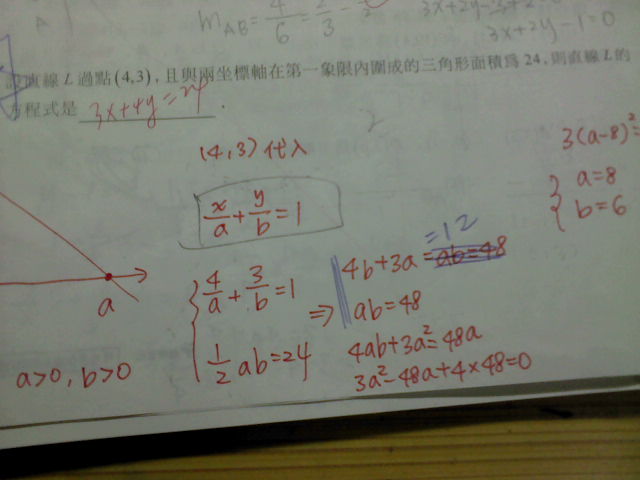 m_AB = 4/6 = 2/3
3x+2y-1=0
直線 L 過點 (4,3), 且與兩坐標軸在第一象限內圍成的三角形面積為 24, 則直線 L 的
方程式是 3x+4y=24.
(4,3) 代入
3(a-8)²=
x/a + y/b = 1
a=8
b=6
4/a + 3/b = 1
1/2 ab=24
⇒
4b+3a = ab=48
=12
ab=48
4ab+3a²=48a
3a²-48a+4×48=0
a
a>0, b>0